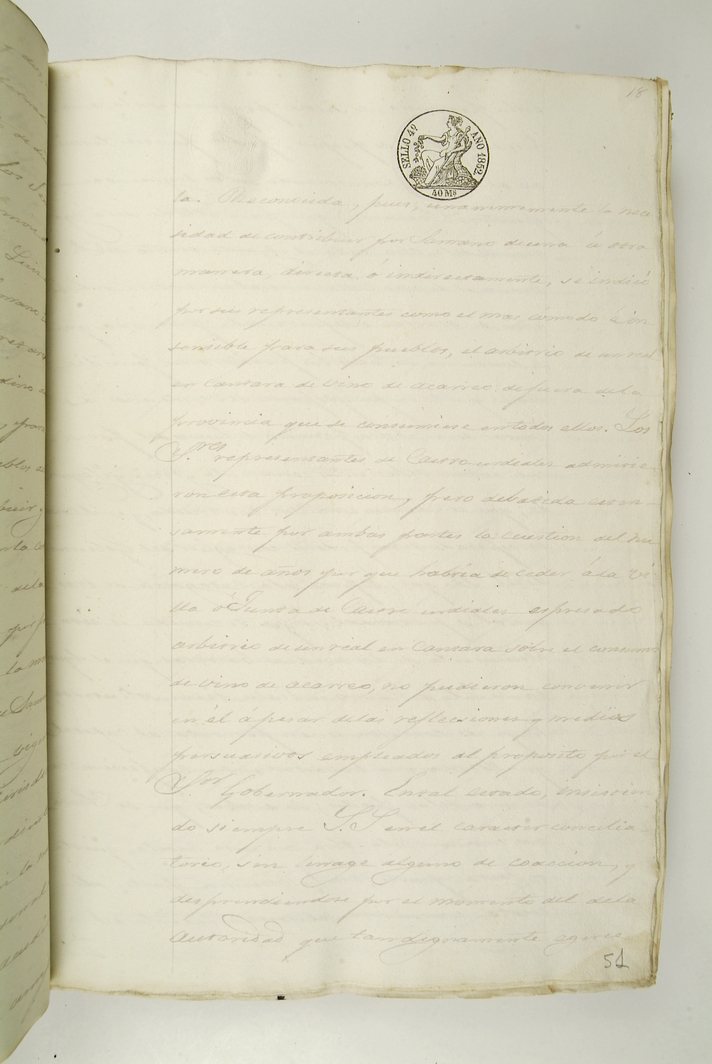 18
SELLO 4º AÑO 1852
40 Ms
la. Reconocida, pues, unanimemente la nece
sidad de contribuir por Samano de una ú otra
manera, directa ó indirectamente, se indicó
por sus representantes como el mas cómodo é in
sensible para sus pueblos, el arbitrio de un real
en cantara de vino de acarreo de fuera de la
provincia que se consumiese en todos ellos. Los
Sres representantes de Castro-urdiales admitie
ron esta proposicion, pero debatida
por ambas partes la cuestion del nu
mero de años por que habria de ceder á la Vi
lla ó Junta de Castro urdiales espresado
arbitrio de un real en cantara sobre el consumo
de vino de acarreo, no pudieron convenir
en él á pesar de las reflecsiones y medios
persuasivos empleados al proposito por el
Sor Gobernador. En tal estado, insistien
do siempre S. S. en el caracter concilia
torio, sin linage alguno de coaccion, y
desprendiendose por el momento del de la
Autoridad que tan dignamente egerce
51